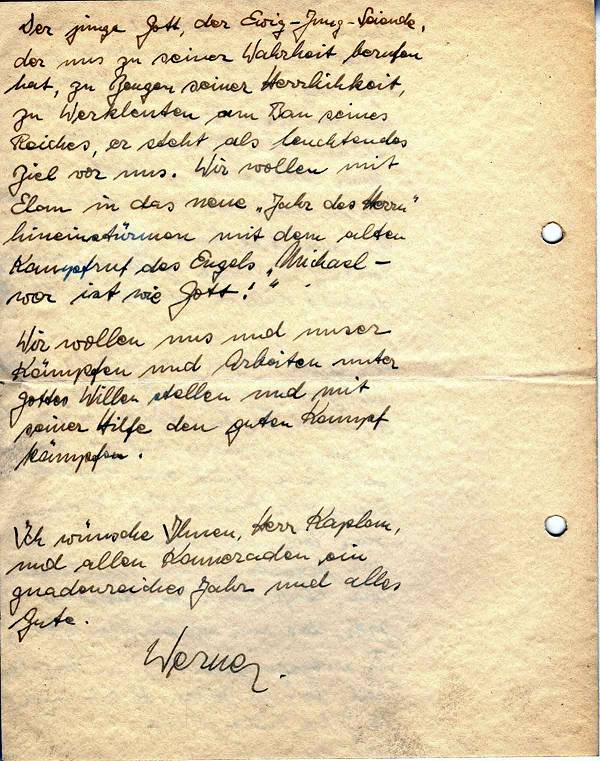 Der junge Gott, der Ewig-Jung-Seiende,
der uns zu seiner Wahrheit berufen
hat, zu Zeugen seiner Herrlichkeit,
zu Werkleuten am Bau seines
Reiches, er steht als leuchtendes
Ziel vor uns. Wir wollen mit
Elan in das neue „Jahr des Herrn"
hineinstürmen mit dem alten
Kampfruf des Engels „Michael –
wer ist wie Gott!"
Wir wollen uns und unser
Kämpfen und Arbeiten unter
Gottes Willen stellen und mit
seiner Hilfe den guten Kampf
kämpfen.
Ich wünsche Ihnen, Herr Kaplan,
und allen Kameraden ein
gnadenreiches Jahr und alles
Gute.
Werner.